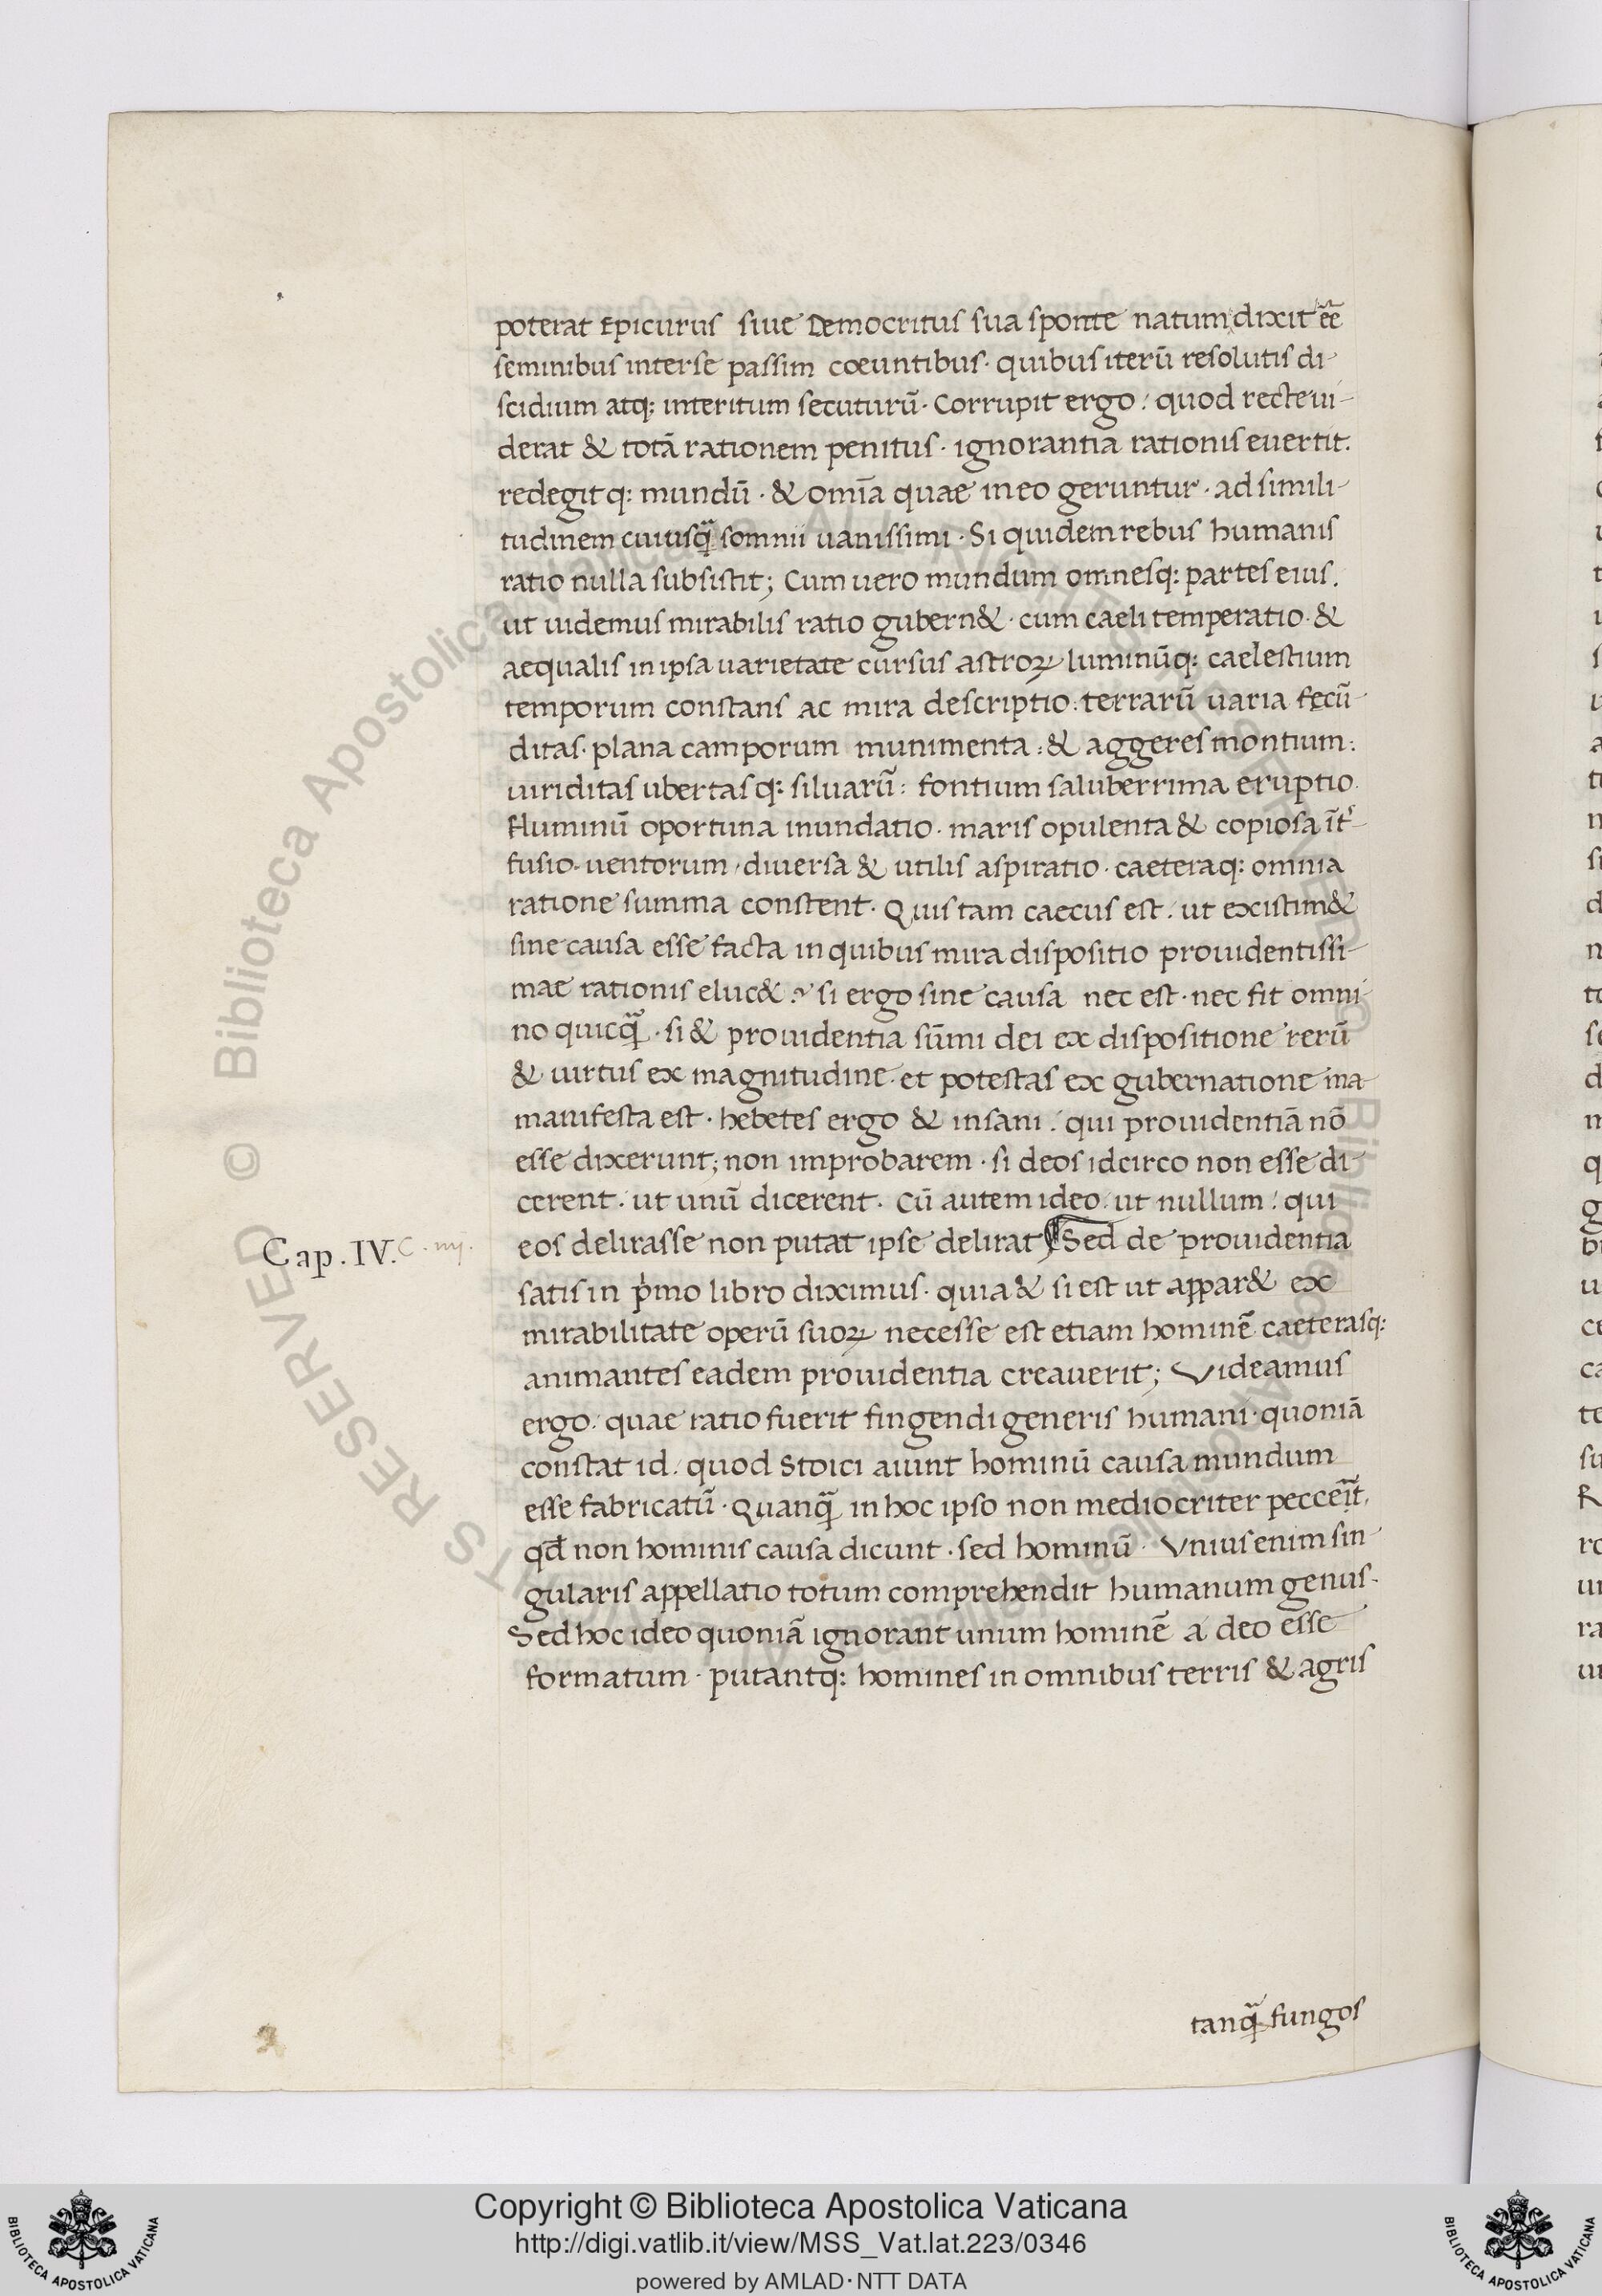 poterat Epicurus siue Democritus sua sponte natum dixit eē
seminibus inter se passim coeuntibus · quibus iterū resolutis di-
scidium atq: interitum secuturū · Corrupit ergo: quod recte ui-
derat & totā rationem penitus · ignorantia rationis euertit.
redegitq: mundū · & omīa quae in eo geruntur · ad simili-
tudinem cuiusq̃ somnii uanissimi · Si quidem rebus humanis
ratio nulla subsistit; Cum uero mundum omnesq: partes eius.
ut uidemus mirabilis ratio gubern& · cum caeli temperatio · &
aequalis in ipsa uarietate cursus astroꝝ luminūq: caelestium
temporum constans ac mira descriptio: terrarū uaria fecū-
ditas · plana camporum munimenta: & aggeres montium:
uiriditas ubertasq: siluarū: fontium saluberrima eruptio.
fluminū oportuna inundatio · maris opulenta & copiosa īt-
fusio · uentorum · diuersa & utilis aspiratio · caeteraq: omnia
ratione summa constent · Quis tam caecus est: ut existim&
sine causa esse facta in quibus mira dispositio prouidentissi-
mae rationis eluc&? si ergo sine causa nec est · nec fit omni-
no quicq̃ · si & prouidentia sūmi dei ex dispositione rerū
& uirtus ex magnitudine · et potestas ex gubernatione ma-
manifesta est · hebetes ergo & insani: qui prouidentiā nō
esse dixerunt; non improbarem · si deos idcirco non esse di-
cerent · ut unū dicerent · Cū autem ideo: ut nullum: qui
Cap. IV. C. iiij.
eos delirasse non putat ipse delirat; Sed de prouidentia
satis in pⁱmo libro diximus · quia & si est ut appar& ex
mirabilitate operū suoꝝ necesse est etiam hominē caeterasq:
animantes eadem prouidentia creauerit; Videamus
ergo: quae ratio fuerit fingendi generis humani · quoniā
constat id: quod Stoici aiunt hominū causa mundum
esse fabricatū · Quanq̃ in hoc ipso non mediocriter pecceīt,
qđ non hominis causa dicunt · sed hominū · Vnius enim sin-
gularis appellatio totum comprehendit humanum genus ·
Sed hoc ideo quoniā ignorant unum hominē a deo esse
formatum · putantq: homines in omnibus terris & agris
tanq̃ fungos
© Biblioteca Apostolica Vaticana ALL RIGHTS RESERVED
Copyright © Biblioteca Apostolica Vaticana
http://digi.vatlib.it/view/MSS_Vat.lat.223/0346
powered by AMLAD·NTT DATA
BIBLIOTECA APOSTOLICA VATICANA
BIBLIOTECA APOSTOLICA VATICANA